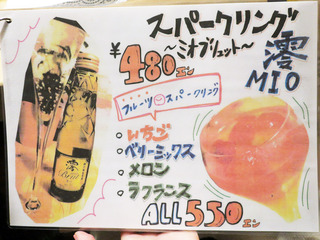 スパークリング
〜ミオブリュット〜
澪
MIO
¥480エン
フルーツスパークリング
いちご
ベリーミックス
メロン
ラフランス
ALL 550エン
澪